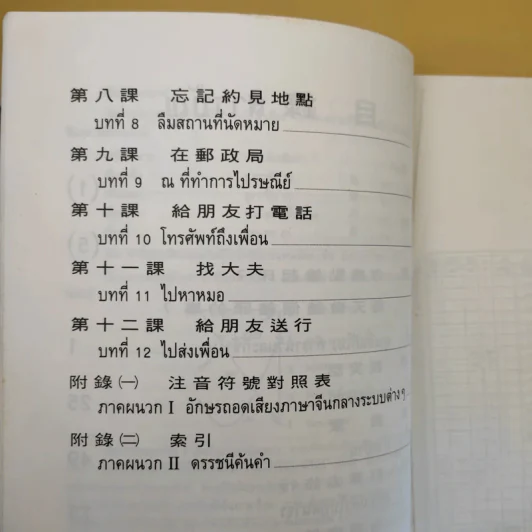 第八課 忘記約見地點
บทที่ 8 ลืมสถานที่นัดหมาย
第九課 在郵政局
บทที่ 9 ณ ที่ทำการไปรษณีย์
第十課 給朋友打電話
บทที่ 10 โทรศัพท์ถึงเพื่อน
第十一課 找大夫
บทที่ 11 ไปหาหมอ
第十二課 給朋友送行
บทที่ 12 ไปส่งเพื่อน
附錄㈠ 注音符號對照表
ภาคผนวก I อักษรถอดเสียงภาษาจีนกลางระบบต่างๆ
附錄㈡ 索引
ภาคผนวก II ดรรชนีค้นคำ